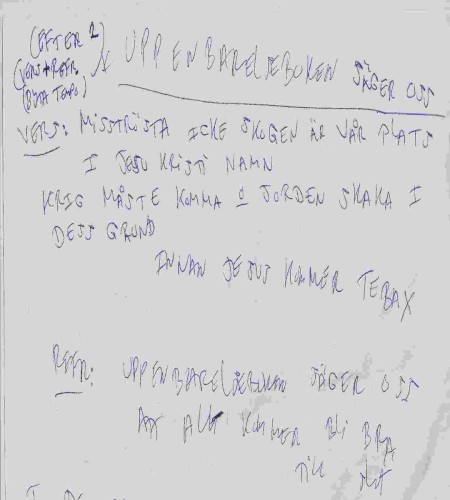 (EFTER 2
VERS + REFR.
BYTA TEMPO)
UPPENBARELSEBOKEN SÄGER OSS
VERS: MISSTRÖSTA ICKE SKOGEN ÄR VÅR PLATS
I JESU KRISTI NAMN
KRIG MÅSTE KOMMA O JORDEN SKAKA I
DESS GRUND
INNAN JESUS KOMMER TEBAX
REFR: UPPENBARELSEBOKEN SÄGER OSS
ATT ALLT KOMMER BLI BRA
TILL SLUT